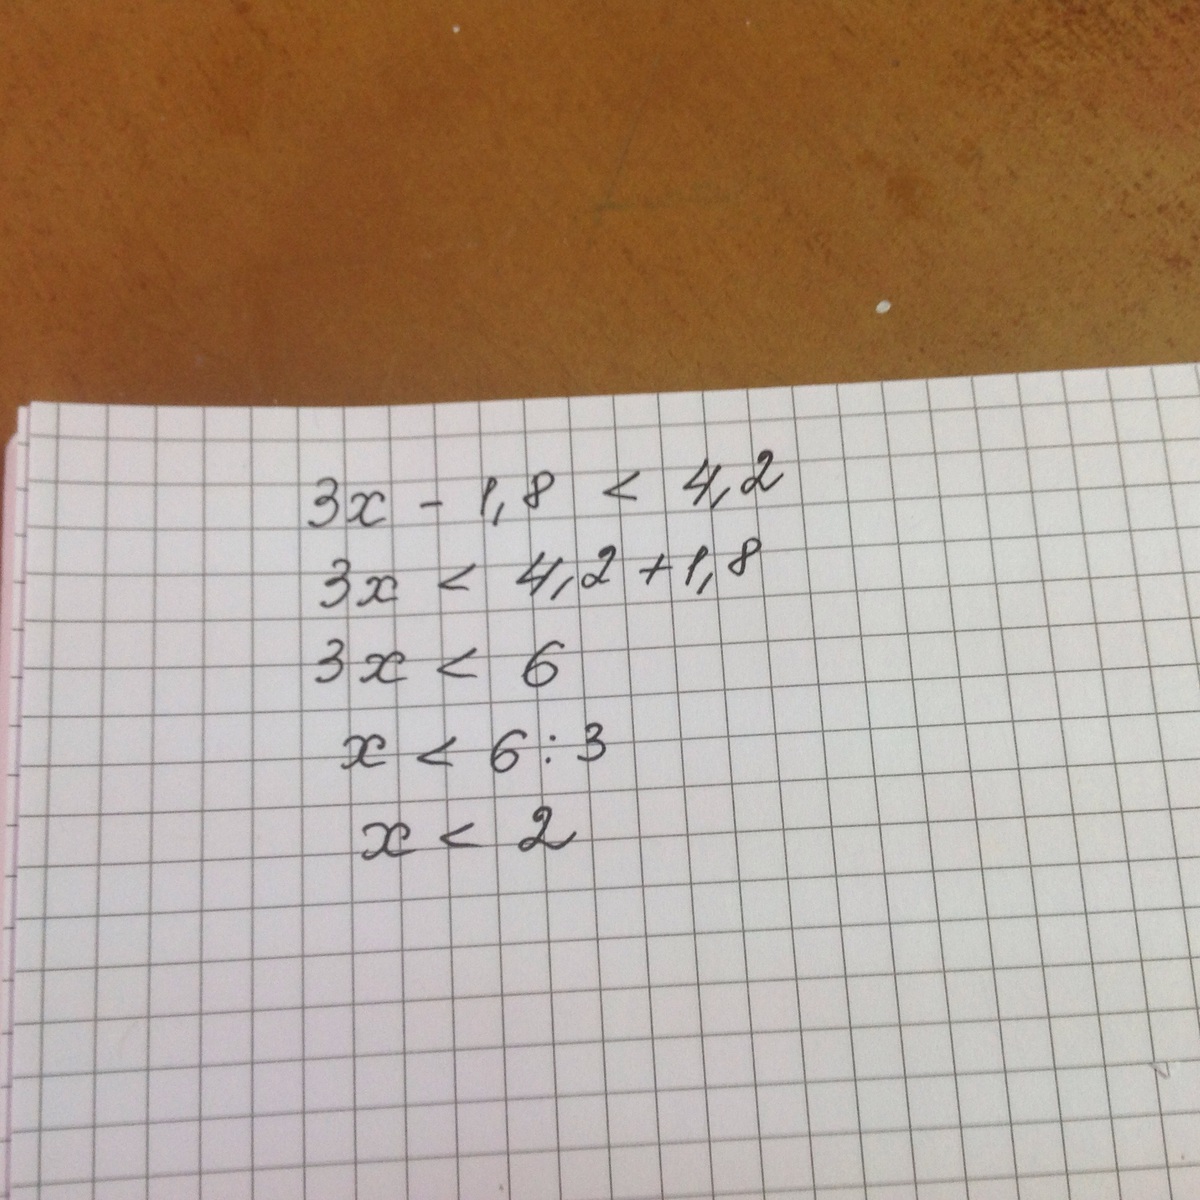 3x - 1,8 < 4,2
3x < 4,2 + 1,8
3x < 6
x < 6 : 3
x < 2